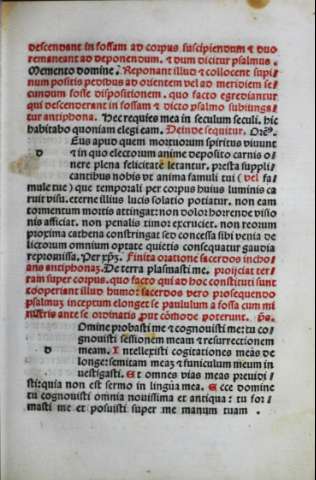 descendant in fossam ad corpus suscipiendum ⁊ duo
remaneant ad deponendum. ⁊ dum dicitur psalmus.
Memento domine. Reponant illud ⁊ collocent supi⸗
num positis pedibus ad orientem vel ad meridiem se⸗
cundum fosse dispositionem. quo facto egrediantur
qui descenderant in fossam ⁊ dicto psalmo subiungi⸗
tur antiphona. Hec requies mea in seculum seculi. hic
habitabo quoniam elegi eam. Deinde sequitur. Orō.
d Eus apud quem mortuorum spiritus viuunt
⁊ in quo electorum anime deposito carnis o⸗
nere plena felicitate letantur. presta suppli
cantibus nobis vt anima famuli tui (vel fa
mule tue) que temporali per corpus huius luminis ca
ruit visu. eterne illius lucis solatio potiatur. non eam
tormentum mortis attingat: non dolor horrende visio
nis afficiat. non penalis timor excruciet. non reorum
proxima cathena constringat sed concessa sibi venia de
lictorum omnium optate quietis consequatur gaudia
repromissa. Per xp̄m. Finita oratione sacerdos incho⸗
ans antiphonaꝫ. De terra plasmasti me. proijciat ter⸗
ram super corpus. quo facto qui ad hoc constituti sunt
cooperiant illud humo: sacerdos vero prosequendo
psalmuꝫ inceptum elonget se paululum a fossa cum mi
nistris ante se ordinatis prout cōmode poterunt. p̄s.
d Omine probasti me ⁊ cognouisti me: tu co⸗
gnouisti sessionem meam ⁊ resurrectionem
meam. Intellexisti cogitationes meas de
longe: semitam meaꝫ ⁊ funiculum meum in
uestigasti. Et omnes vias meas preuidi⸗
sti: quia non est sermo in lingua mea. Ecce domine
tu cognouisti omnia nouissima et antiqua: tu for⸗
masti me et posuisti super me manum tuam.